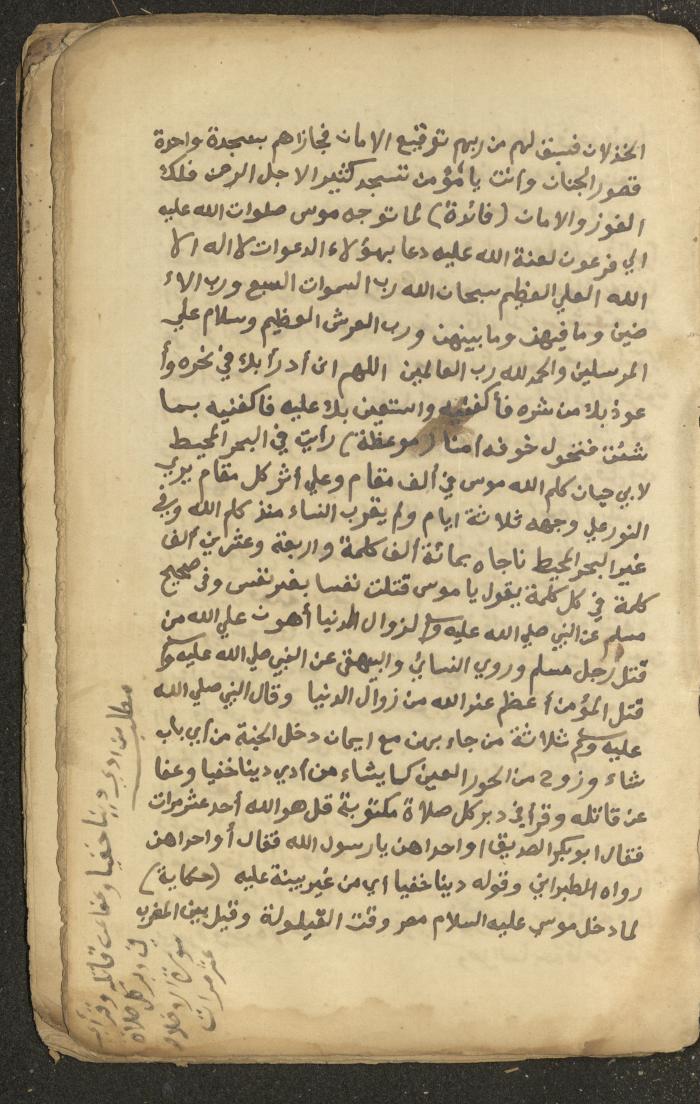 الخذلان فسبق لهم من ربهم توقيع الامان فجازاهم بسجدة واحدة
قصور الجنان وانت يا مؤمن تسجد كثيرا لاجل الرحمن فلك
الفوز والامان (فائدة) لما توجه موسى صلوات الله عليه
الي فرعون لعنة الله عليه دعا بهؤلاء الدعوات لا اله الا
الله العلي العظيم سبحان الله رب السموات السبع ورب الار
ضين وما فيهن وما بينهن ورب العرش العظيم وسلام علي
المرسلين والحمد لله رب العالمين اللهم اني أدرأ بك في نحره وأ
عوذ بك من شره فأكفنيه واستعين بك عليه فاكفنيه بما
شئت فتحول خوفه أمنا (موعظة) رأيت في البحر المحيط
لابي حيان كلم الله موسى في ألف مقام وعلي أثر كل مقام يري
النور علي وجهه ثلاثة ايام ولم يقرب النساء منذ كلم الله وفي
غير البحر المحيط ناجاه بمائة ألف كلمة واربعة وعشرين ألف
كلمة في كل كلمة يقول يا موسى قتلت نفسا بغير نفس وفي صحيح
مسلم عن النبي صلي الله عليه وسلم لزوال الدنيا أهون علي الله من
قتل رجل مسلم وروي النسائي والبيهقي عن النبي صلي الله عليه وسلم
قتل المؤمن أعظم عند الله من زوال الدنيا وقال النبي صلي الله
عليه وسلم ثلاثة من جاء بهن مع ايمان دخل الجنة من أي باب
شاء وزوج من الحور العين كما يشاء من أدي دينا خفيا وعفا
عن قاتله وقرأ في دبر كل صلاة مكتوبة قل هو الله أحد عشر مرات
فقال ابو بكر الصديق أو احداهن يا رسول الله فقال أو احداهن
رواه الطبراني وقوله دينا خفيا اي من غير بينة عليه (حكاية)
لما دخل موسي عليه السلام مصر وقت القيلولة وقيل بين المغرب
مطلب من ادي دينا خفيا وعفا عن قاتله وقرأ
في دبر كل صلاة
سورة الاخلاص
عشر مرات